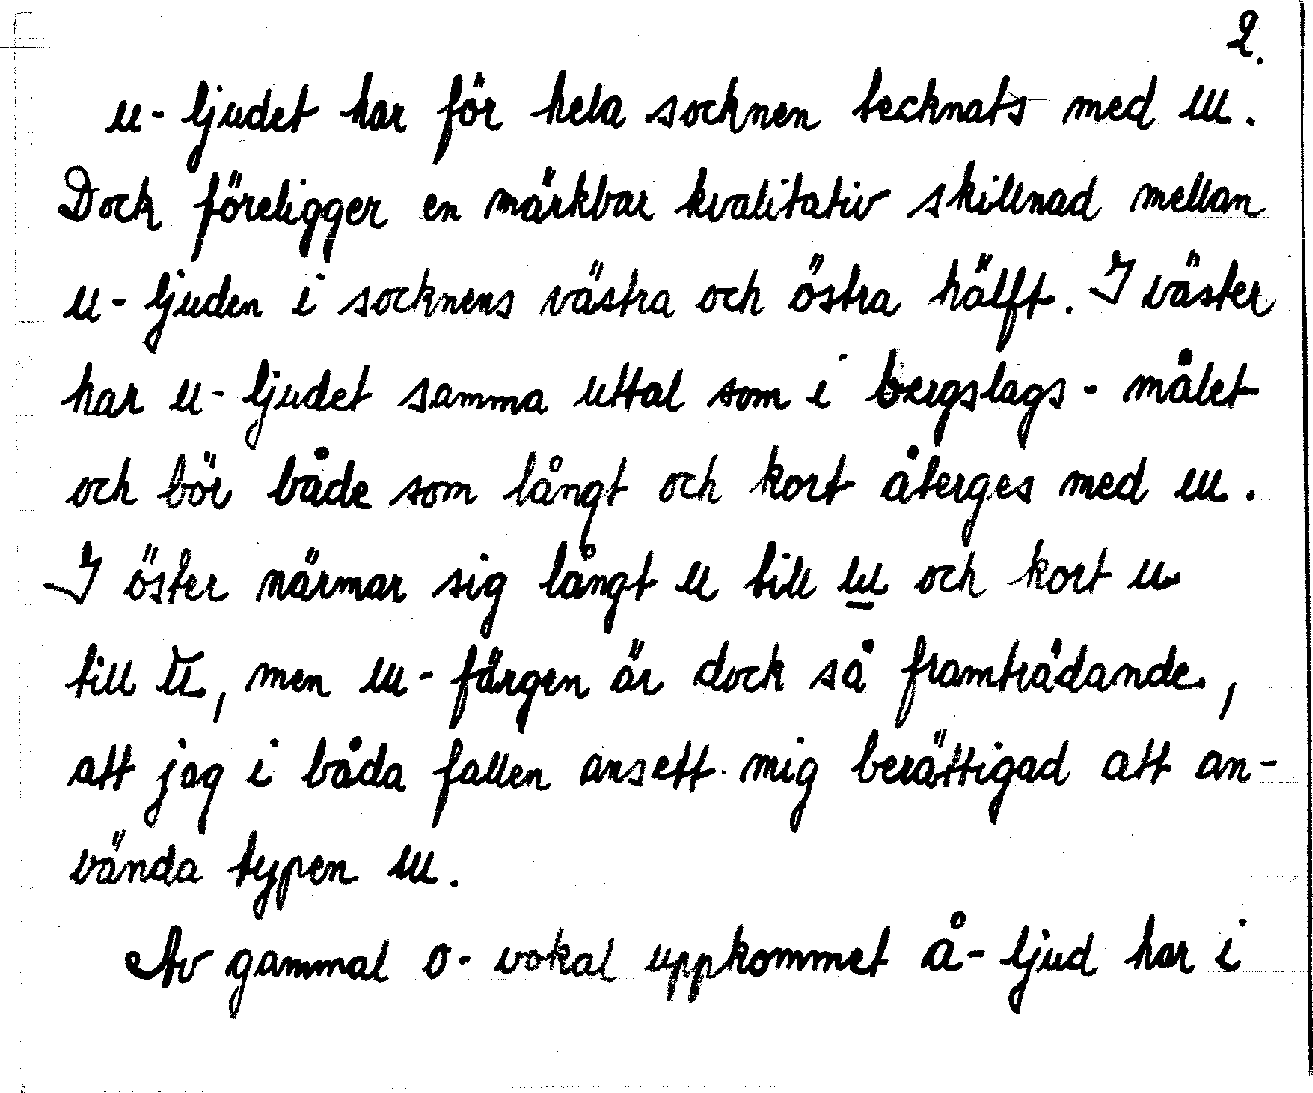 2.
u-ljudet har för hela socknen tecknats med ɯ.
Dock föreligger en märkbar kvalitativ skillnad mellan
u-ljuden i socknens västra och östra hälft. I väster
har u-ljudet samma uttal som i bergslags-målet
och bör både som långt och kort återges med ɯ.
I öster närmar sig långt u till ɯ̲ och kort u
till ŭ, men ɯ-färgen är dock så framträdande,
att jag i båda fallen ansett mig berättigad att an-
vända typen ɯ.
Av gammal o-vokal uppkommet å-ljud har i